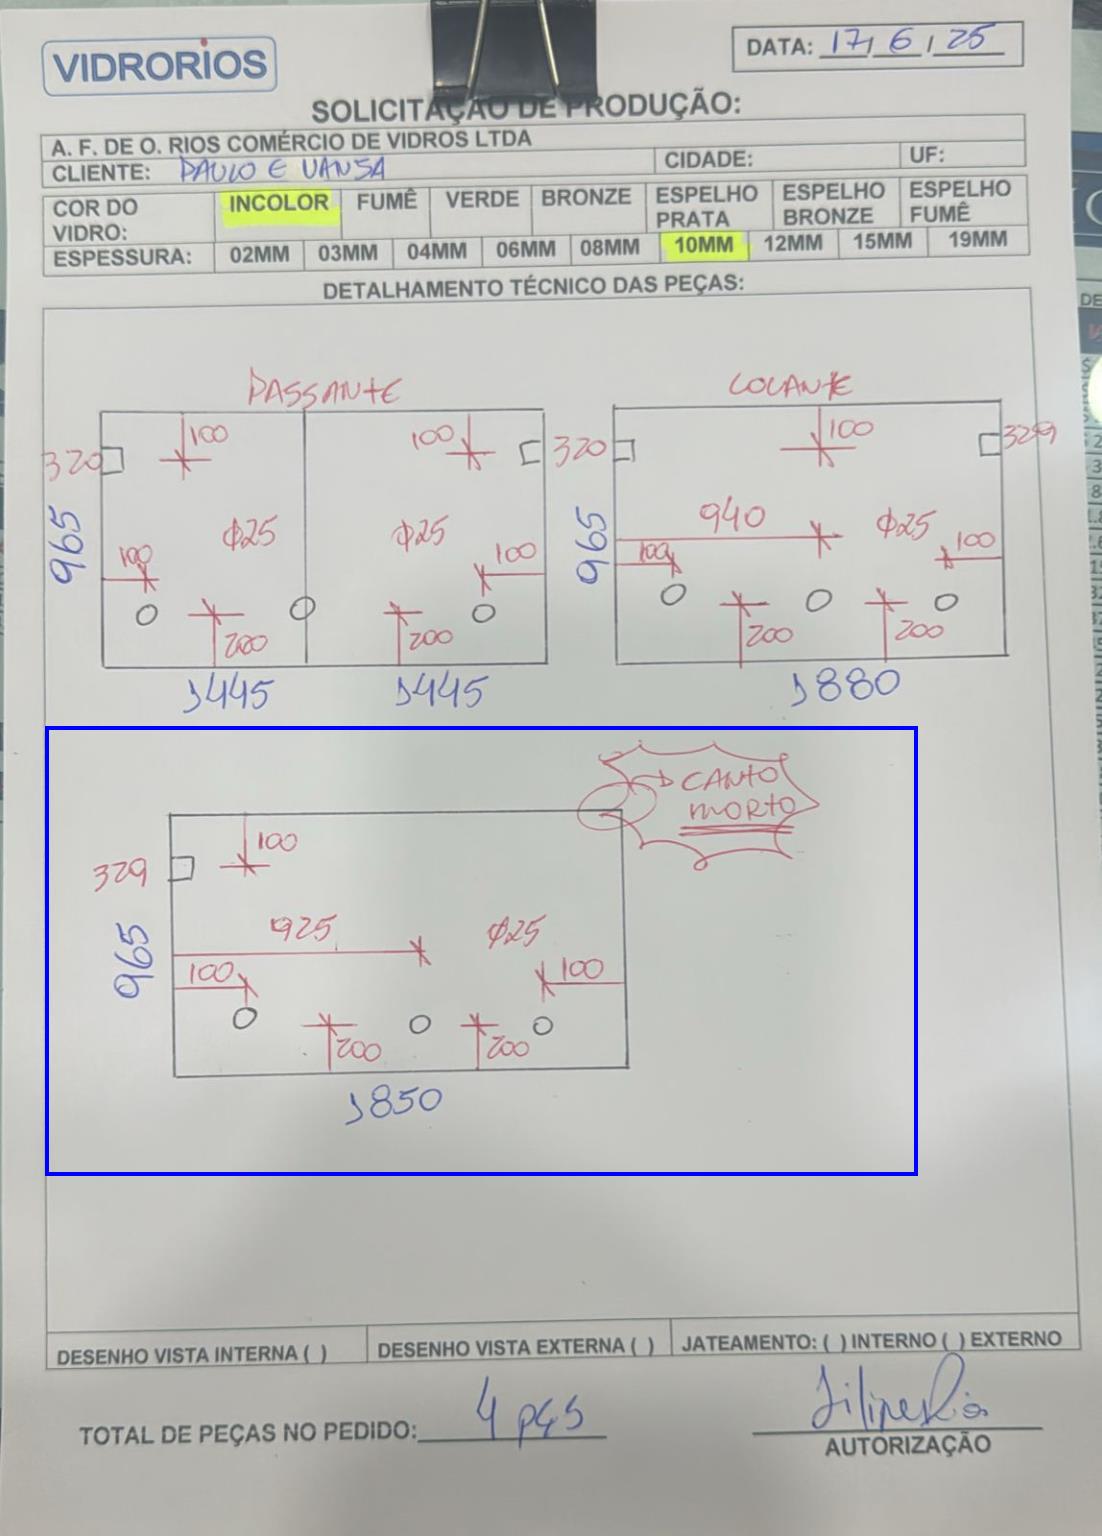 VIDRORIOS
DATA: 17/6/25
SOLICITAÇÃO DE PRODUÇÃO:
A. F. DE O. RIOS COMÉRCIO DE VIDROS LTDA
CLIENTE: PAULO E VANSA CIDADE: UF:
COR DO VIDRO: INCOLOR FUMÊ VERDE BRONZE ESPELHO PRATA ESPELHO BRONZE ESPELHO FUMÊ
ESPESSURA: 02MM 03MM 04MM 06MM 08MM 10MM 12MM 15MM 19MM
DETALHAMENTO TÉCNICO DAS PEÇAS:
PASSANTE
100 100
320
965
Φ25 Φ25
100 100
200 200
1445 1445
COLANTE
320 100 329
965
940 Φ25
100 100
200 200
1880
CANTO
MORTO
100
329
965
925 Φ25
100 100
200 200
1850
DESENHO VISTA INTERNA ( ) DESENHO VISTA EXTERNA ( ) JATEAMENTO: ( ) INTERNO ( ) EXTERNO
TOTAL DE PEÇAS NO PEDIDO: 4 pçs
AUTORIZAÇÃO